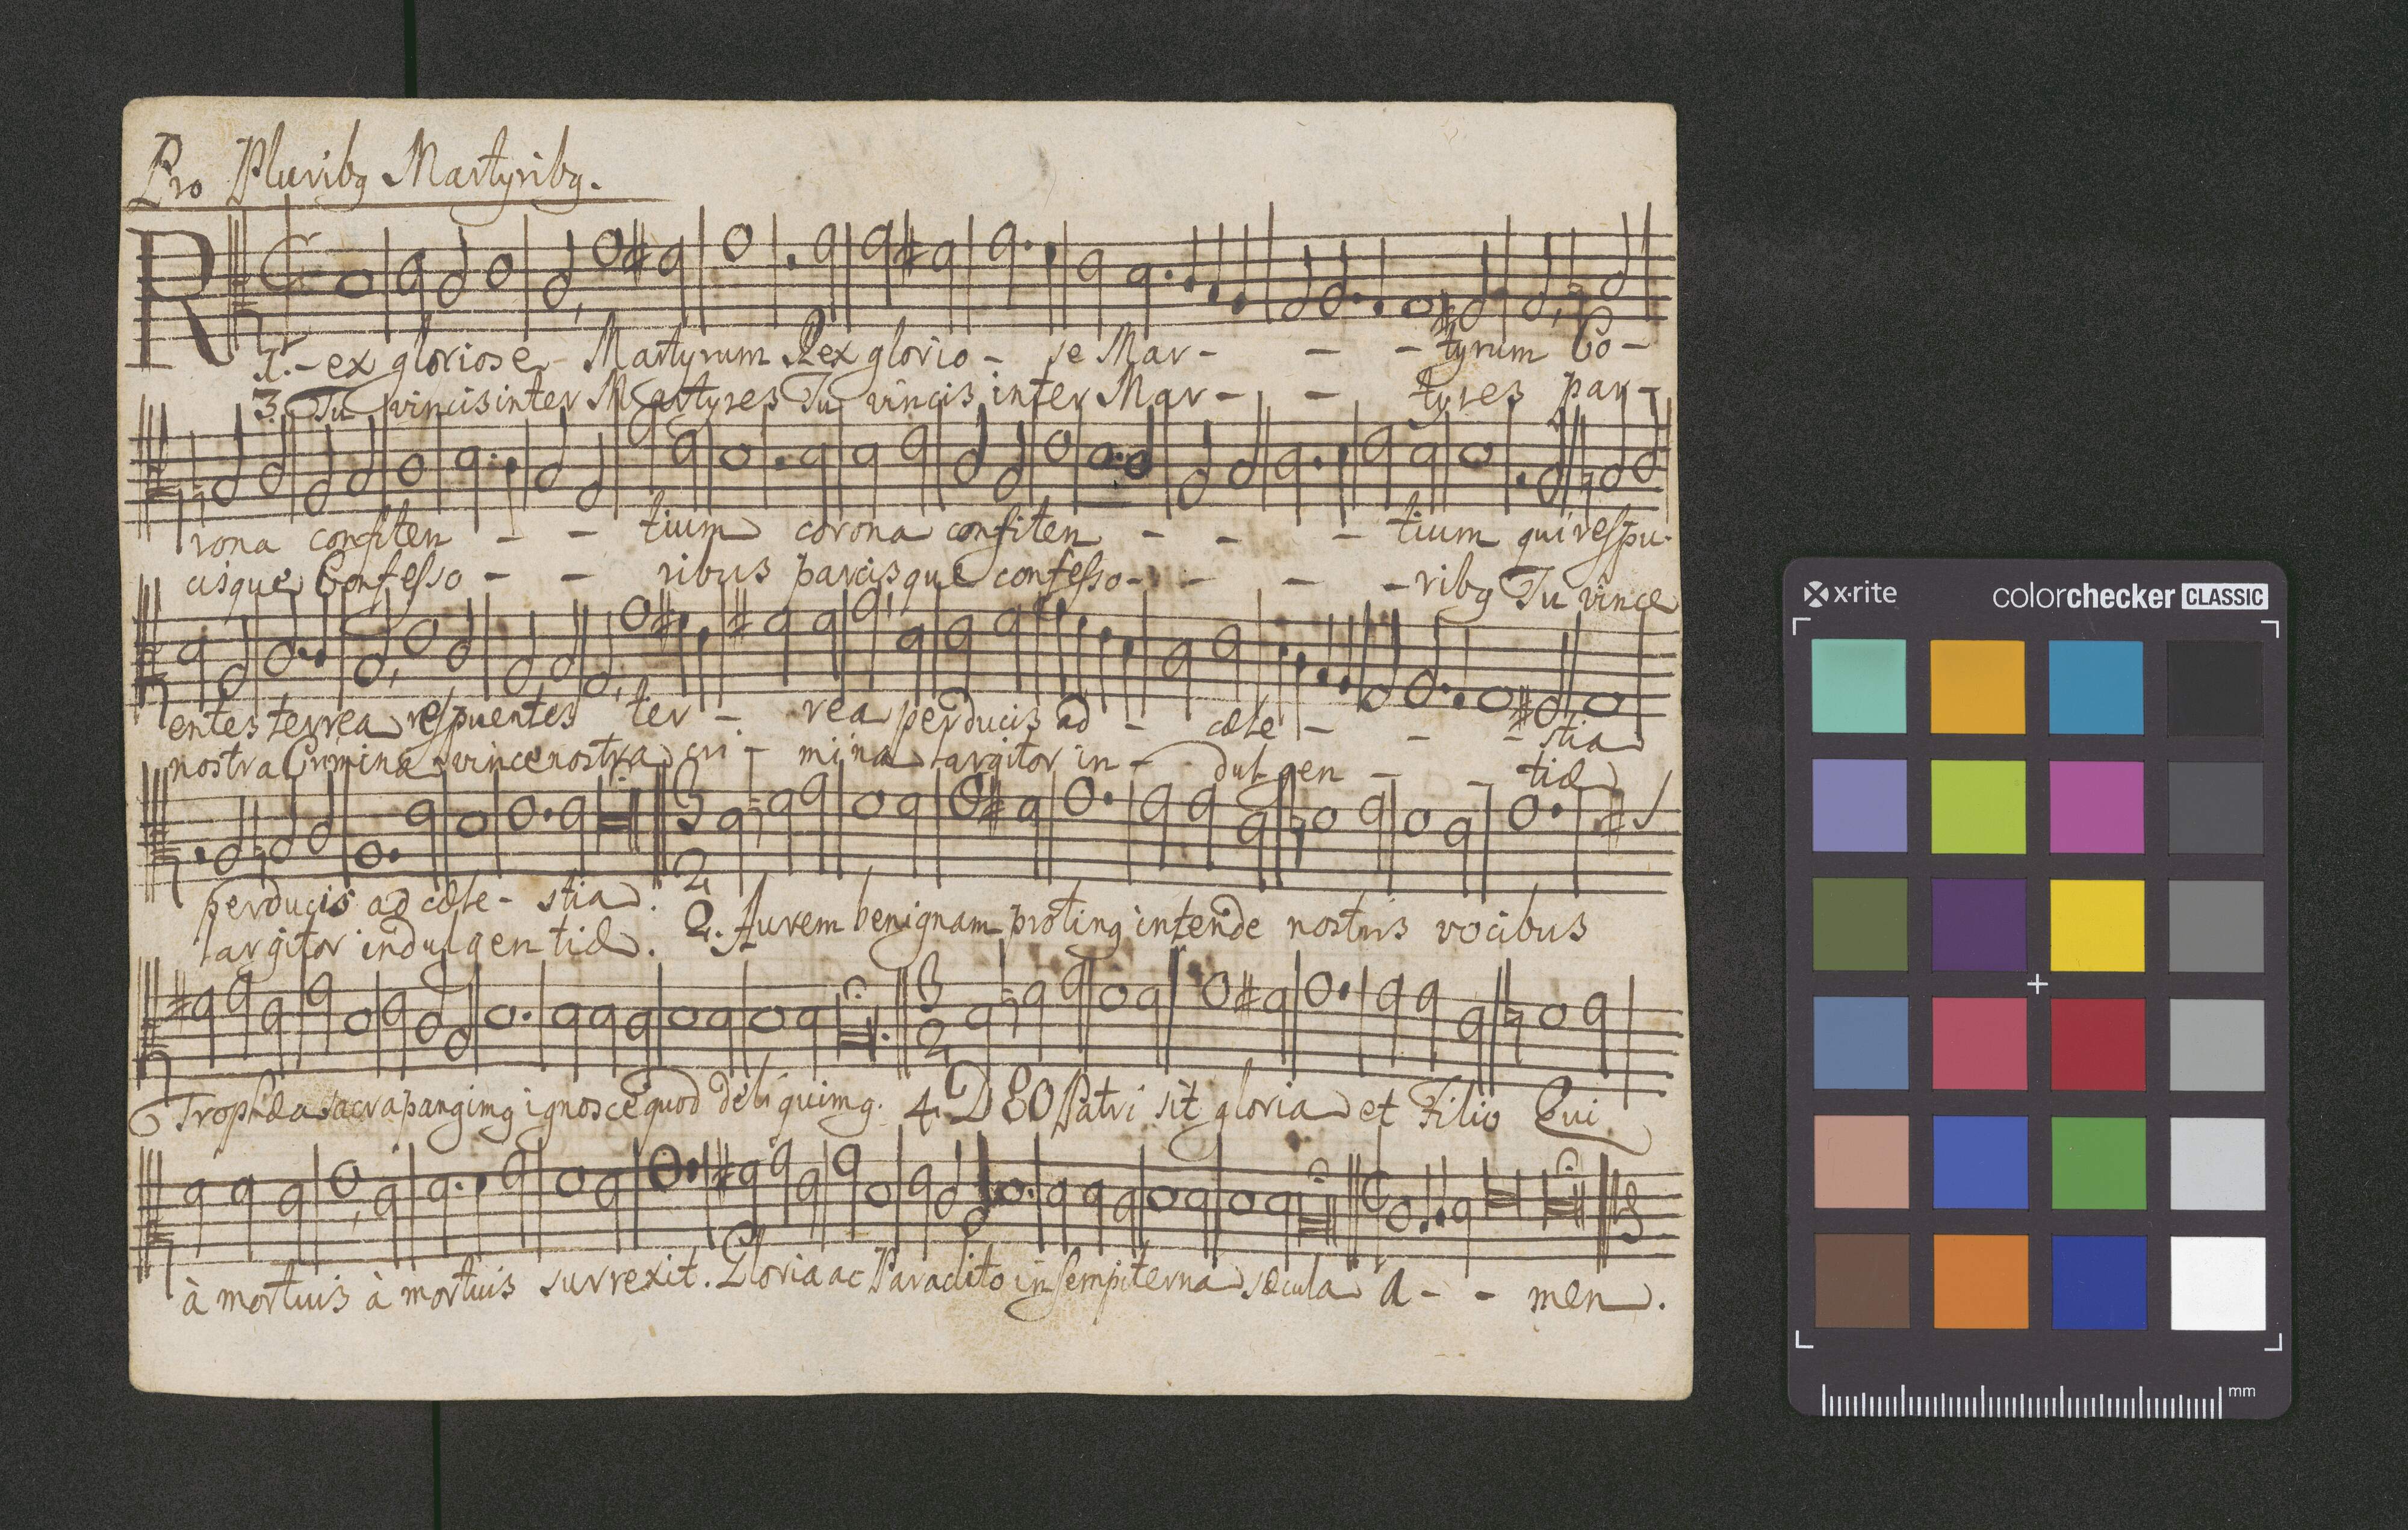 Pro Pluribꝫ Martyribꝫ.
R
1.-ex gloriose Martyrum Rex glorio - se Mar - - - tyrum Co-
3. Tu vincis inter Martyres Tu vincis inter Mar - - tyres par-
rona confiten - - tium corona confiten - - - tium qui respu-
cisque Confesso - - ribus parcisque confesso - - - ribꝫ Tu vince
entes terrea respuentes ter - rea perducis ad - cæle - - - stia
nostra Crimina vince nostra cri - mina largitor in - dulgen - - tiæ
perducis ad cæle - stia. 2. Aurem benignam protinꝫ intende nostris vocibus
largitor indulgentiæ.
Trophæa sacra pangimꝫ ignosce quod deliquimꝫ. 4. DEO Patri sit gloria et Filio Qui
à mortuis à mortuis surrexit. Gloria ac Paraclito in sempiterna sæcula A - - men.
x·rite colorchecker CLASSIC
mm